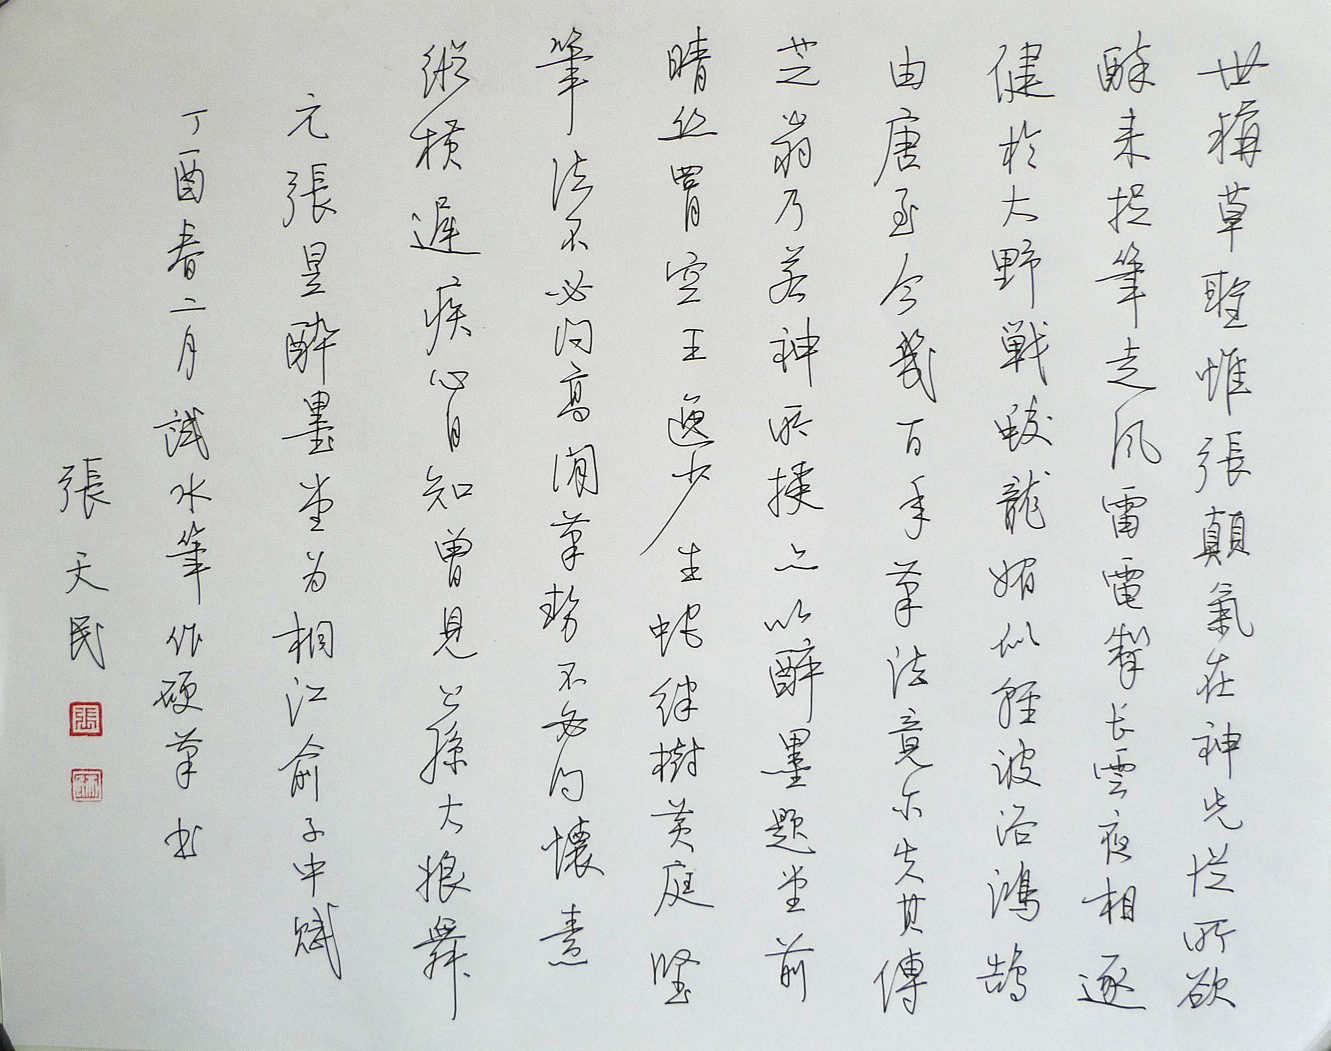 世稱草聖惟張顛氣在神先從所欲
醉来捉筆走风雷電掣长雲夜相逐
健於大野戰蛟龍媚似輕波浴鴻鵠
由唐至今幾百年草法竟亦失其傳
芝翁乃若神所授亦以醉墨題堂前
晴丝罥空王逸少生蛇絆樹黄庭堅
筆法不必问高閑草勢不必问懷素
縱横遲疾心自知曾見公孫大娘舞
元張昱醉墨堂为相江俞子中赋
丁酉春二月試水筆作硬草书
張天民
張